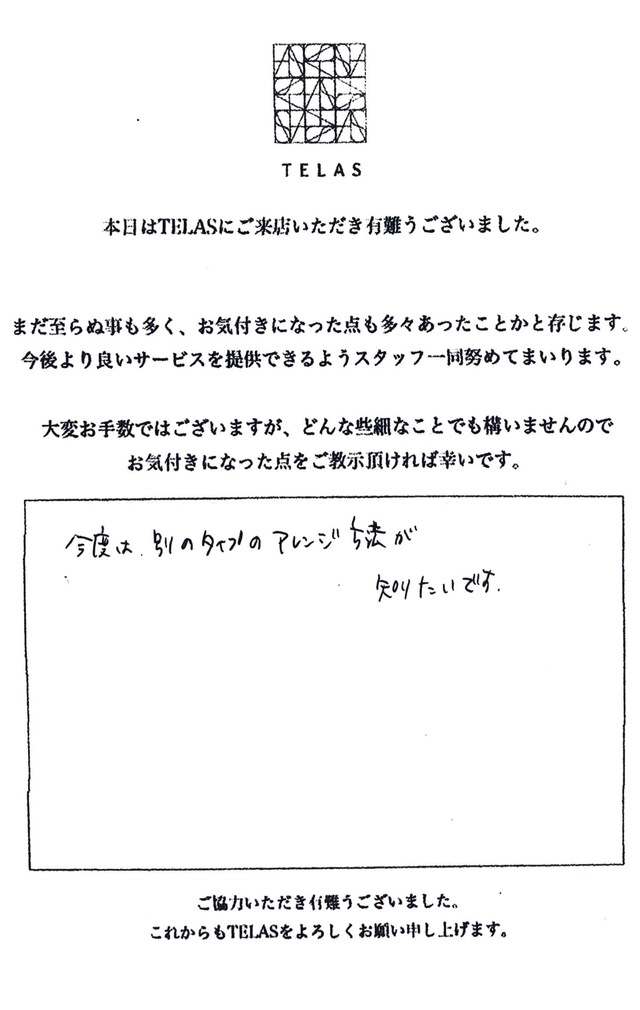 TELAS
本日はTELASにご来店いただき有難うございました。
まだ至らぬ事も多く、お気付きになった点も多々あったことかと存じます。
今後より良いサービスを提供できるようスタッフ一同努めてまいります。
大変お手数ではございますが、どんな些細なことでも構いませんので
お気付きになった点をご教示頂ければ幸いです。
今度は、別のタイプのアレンジ方法が
知りたいです。
ご協力いただき有難うございました。
これからもTELASをよろしくお願い申し上げます。